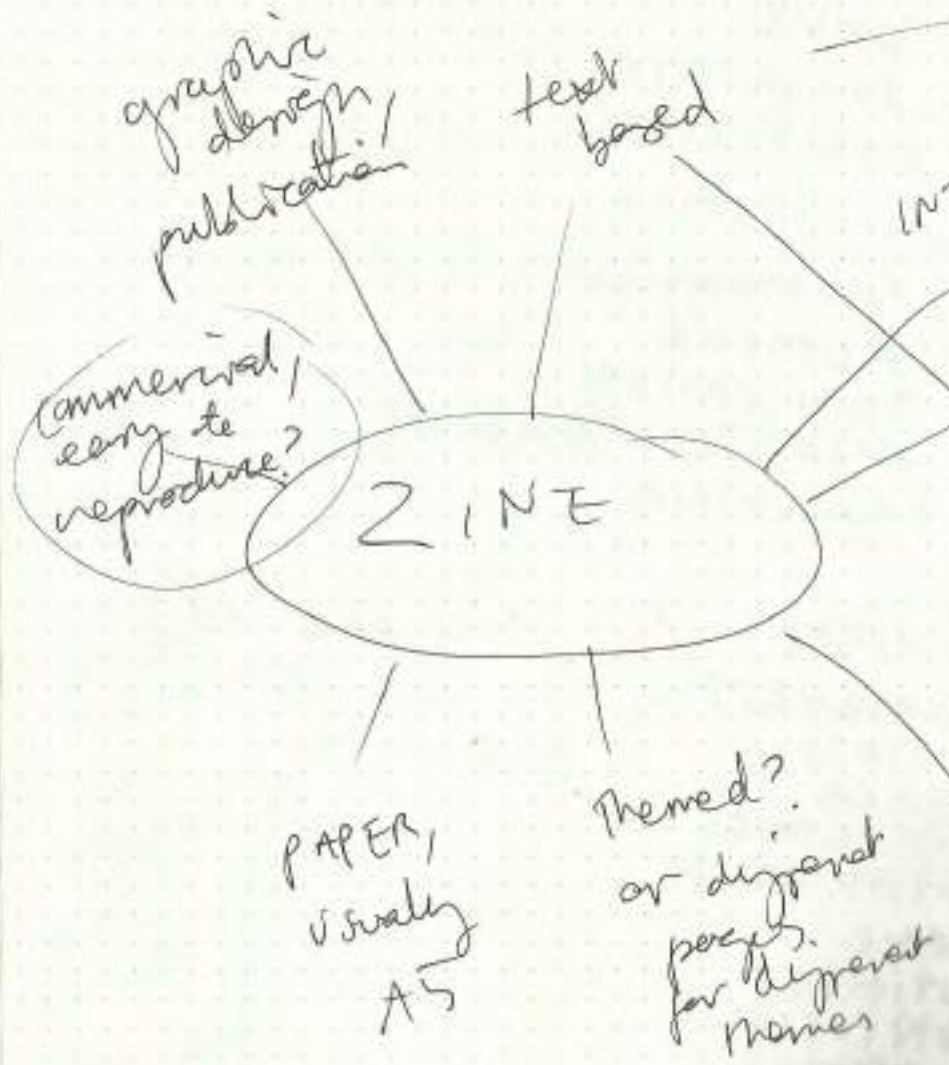 graphic
design,
publication
text
based
IN
commercial,
easy to
reproduce?
ZINE
PAPER,
usually
A5
Themed?
or different
pages.
for different
themes